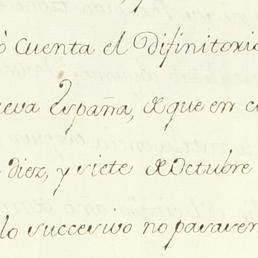 ò cuenta el Difinitorio
ueva España, de que en c
diez, y siete de Octubre
lo successivo no pasaren